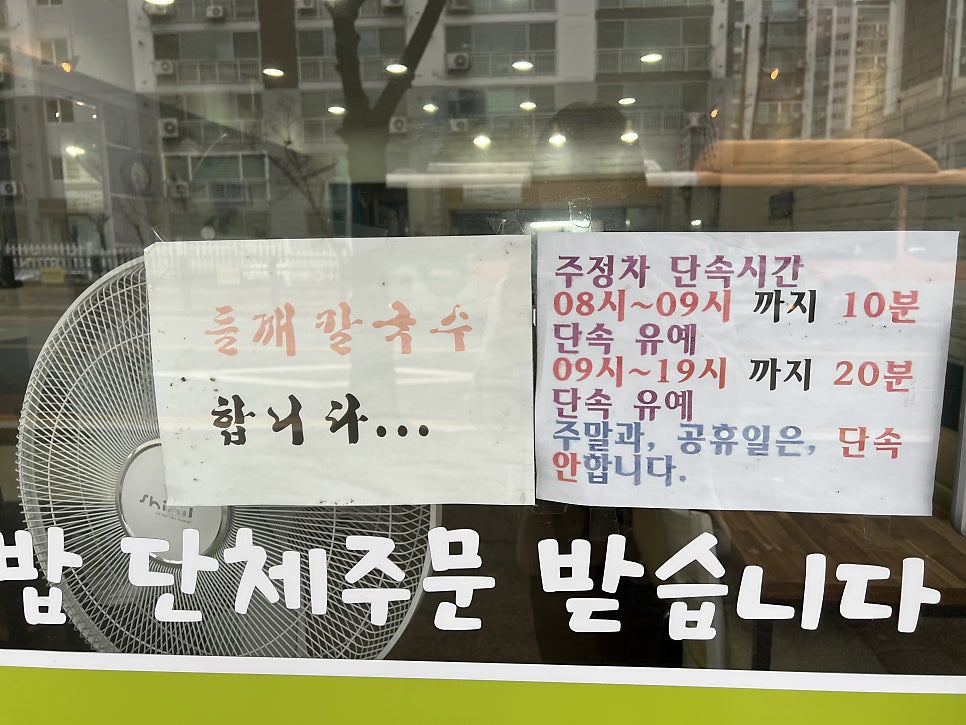 들깨칼국수
합니다...
주정차 단속시간
08시~09시 까지 10분
단속 유예
09시~19시 까지 20분
단속 유예
주말과, 공휴일은, 단속
안합니다.
shinil
밥 단체주문 받습니다